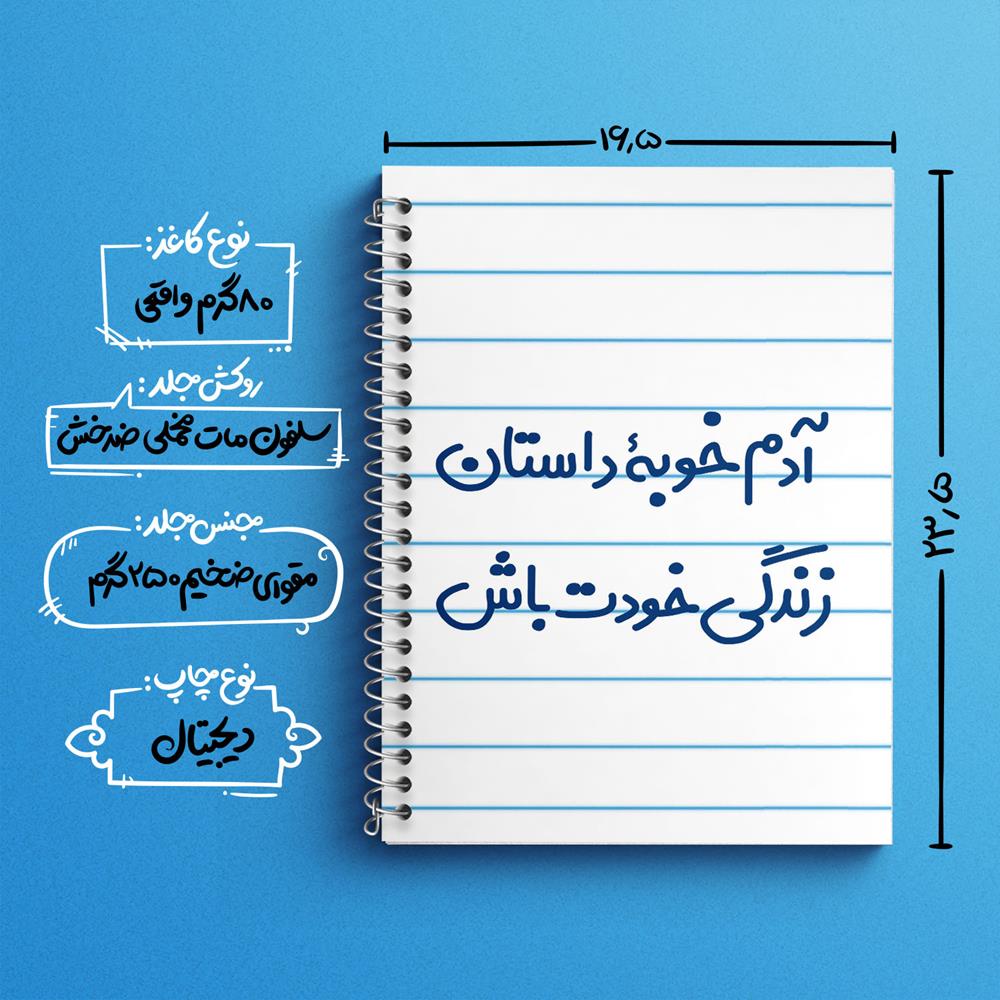 ۱۶٫۵
نوع کاغذ:
۸۰گرم واقعی
روکش جلد:
سلفون مات مخملی ضدخش
جنس جلد:
مقوای ضخیم ۲۵۰گرم
نوع چاپ:
دیجیتال
آدم خوبهٔ داستان
زندگی خودت باش
۲۳٫۵